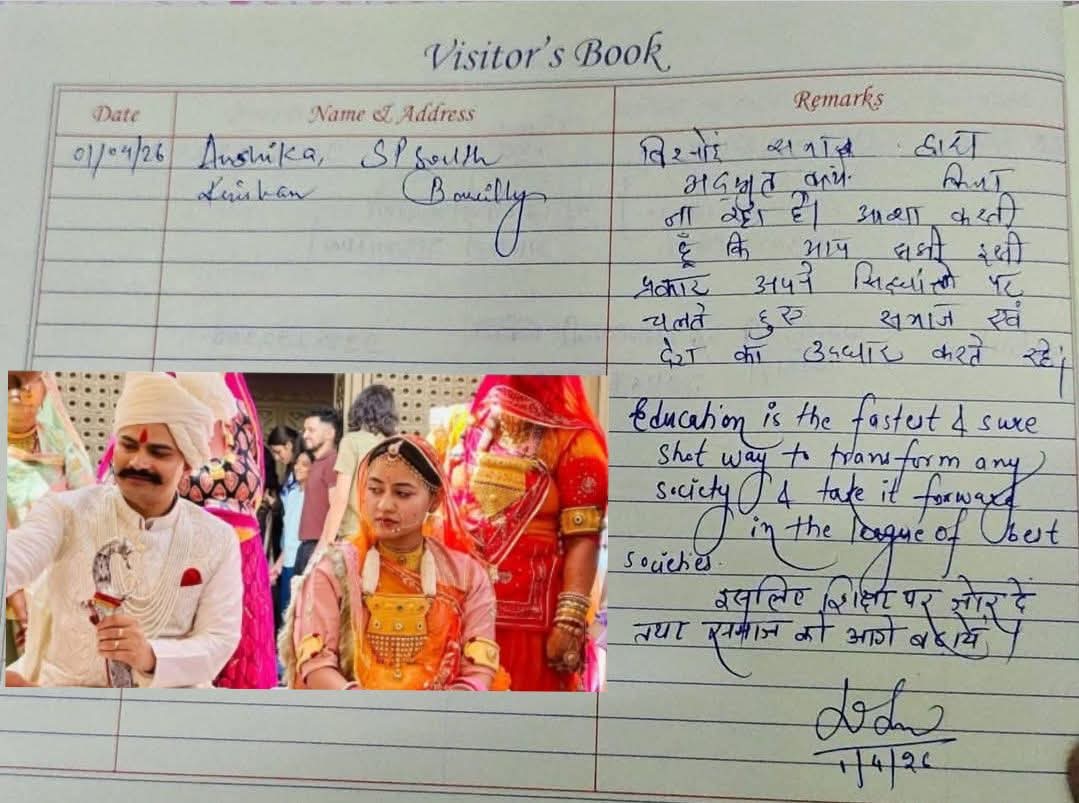 Visitor's Book
Date Name & Address Remarks
01/04/26 Anshika, SP South
Bareilly
बिश्नोई समाज द्वारा
अद्भुत कार्य किया
जा रहा है। आशा करती
हूँ कि आप सभी इसी
प्रकार अपने सिद्धांतों पर
चलते हुए समाज एवं
देश का उद्धार करते रहें।
Education is the fastest & sure
shot way to transform any
society & take it forward
in the league of best
societies.
इसलिए शिक्षा पर जोर दें
तथा समाज को आगे बढायें।
1/4/26